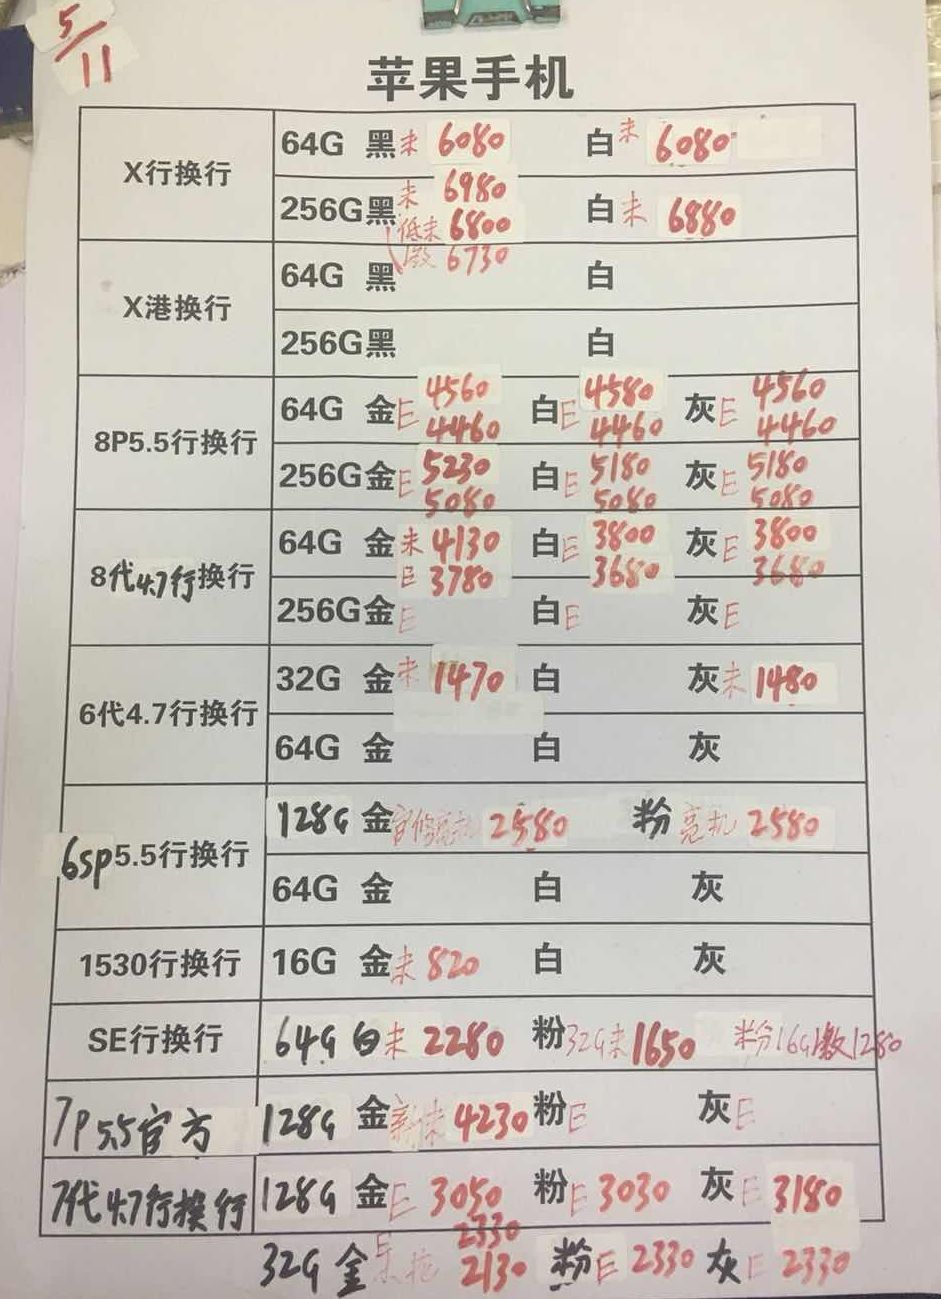 5/11
苹果手机
X行换行
64G 黑 未 6080 白 未 6080
256G 黑 未 6980 白 未 6880
低未 6800
激 6730
X港换行
64G 黑 白
256G 黑 白
8P5.5行换行
64G 金 E 4560 白 E 4580 灰 E 4560
4460 4460 4460
256G 金 E 5230 白 E 5180 灰 E 5180
5080 5080 5080
8代4.7行换行
64G 金 未 4130 白 E 3800 灰 E 3800
E 3780 3680 3680
256G 金 E 白 E 灰 E
6代4.7行换行
32G 金 未 1470 白 灰 未 1480
64G 金 白 灰
6sp5.5行换行
128G 金 官修亮机 2580 粉 亮机 2580
64G 金 白 灰
1530行换行
16G 金 未 820 白 灰
SE行换行
64G 白 未 2280 粉 32G未 1650 粉16G激1280
7P5.5官方
128G 金 未 4230 粉 E 灰 E
7代4.7行换行
128G 金 E 3050 粉 E 3030 灰 E 3180
2330
32G 金 E 2130 粉 E 2330 灰 E 2330